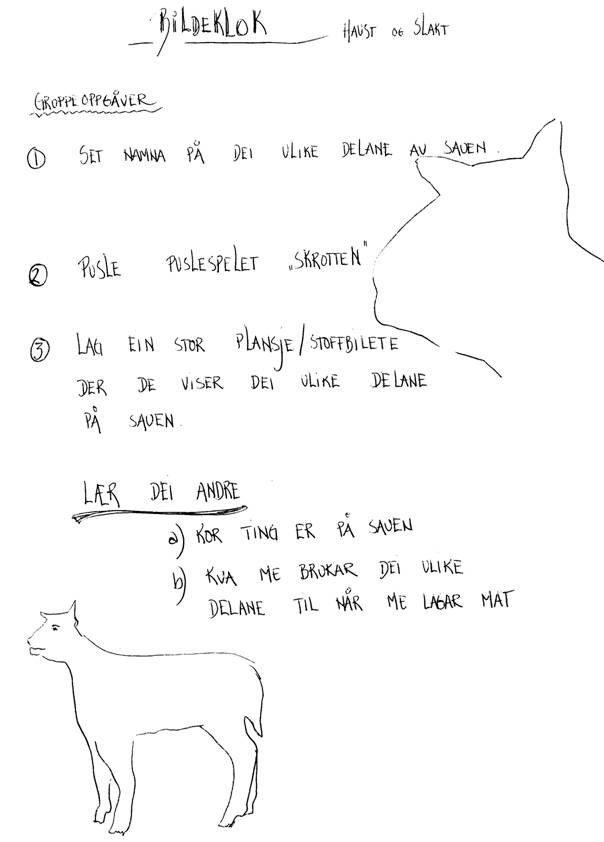 BILDEKLOK HAUST OG SLAKT
GRUPPEOPPGÅVER
① SET NAMNA PÅ DEI ULIKE DELANE AV SAUEN.
② PUSLE PUSLESPELET „SKROTTEN"
③ LAG EIN STOR PLANSJE/STOFFBILETE
DER DE VISER DEI ULIKE DELANE
PÅ SAUEN.
LÆR DEI ANDRE
a) KOR TING ER PÅ SAUEN
b) KVA ME BRUKAR DEI ULIKE
DELANE TIL NÅR ME LAGAR MAT